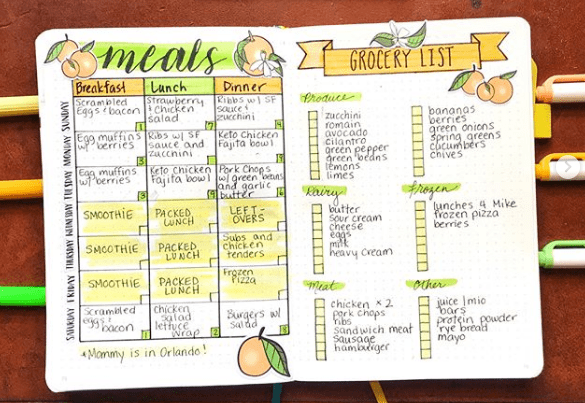 meals
Breakfast Lunch Dinner
SUNDAY
Scrambled
Eggs & bacon
1
Strawberry
& chicken
salad
Ribbs w/ SF
sauce &
zucchini
MONDAY
Egg muffins
w/ berries
3
Ribs w/ SF
sauce and
zucchini
Keto Chicken
Fajita bowl
TUESDAY
Egg muffins
w/ berries
3
Keto Chicken
Fajita bowl
Pork Chops
w/ green beans
and garlic
butter
6
WEDNESDAY
SMOOTHIE
PACKED
LUNCH
LEFT-
OVERS
THURSDAY
SMOOTHIE
PACKED
LUNCH
Subs and
chicken
tenders
FRIDAY
SMOOTHIE
PACKED
LUNCH
Frozen
Pizza
SATURDAY
Scrambled
eggs &
bacon
1
chicken
salad
lettuce
wrap
2
Burgers w/
salad
*Mommy is in Orlando!
GROCERY LIST
Produce
zucchini
romain
avocado
cilantro
green pepper
green beans
lemons
limes
bananas
berries
green onions
spring greens
cucumbers
chives
Dairy
butter
sour cream
cheese
eggs
milk
heavy cream
Frozen
lunches 4 Mike
frozen pizza
berries
Meat
chicken x 2
pork chops
ribs
sandwich meat
sausage
hamburger
Other
juice/mio
bars
protein powder
rye bread
mayo